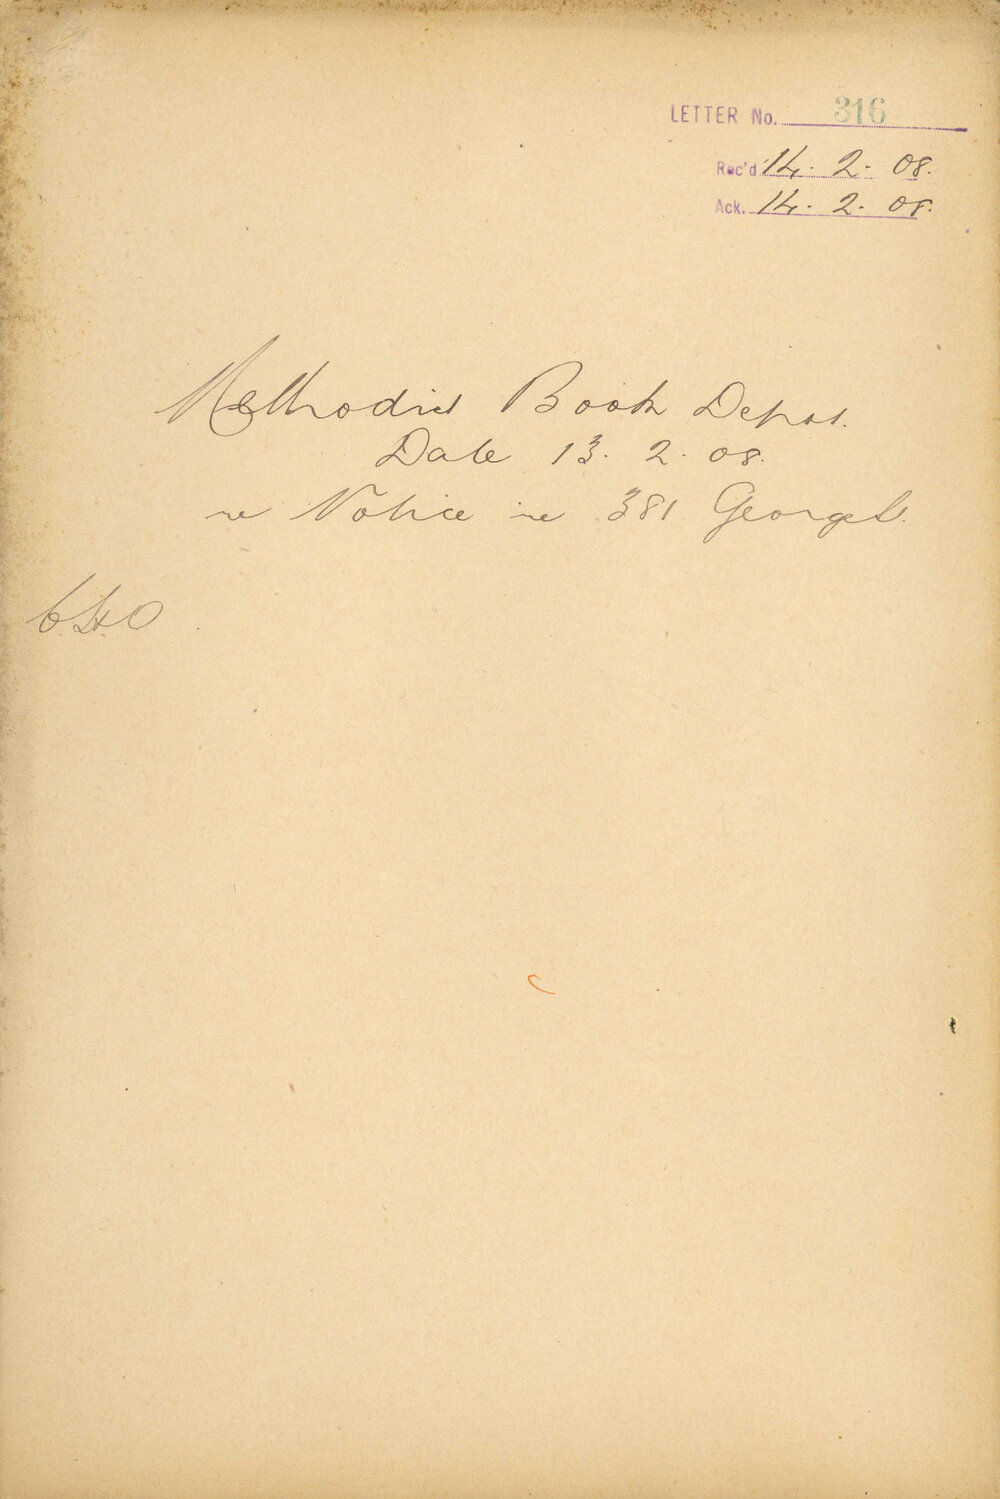 LETTER No. 316
Rec'd 14. 2. 08.
Ack. 14. 2. 08.
Methodist Book Depot.
Date 13. 2. 08.
re Notice re 381 George St.
C.H.O